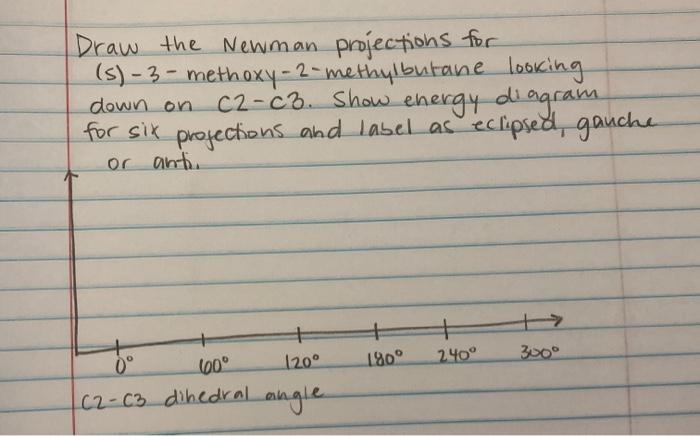 Draw the Newman projections for
(S)-3-methoxy-2-methylbutane looking
down on C2-C3. Show energy diagram
for six projections and label as eclipsed, gauche
or anti.
0° 60° 120° 180° 240° 300°
C2-C3 dihedral angle